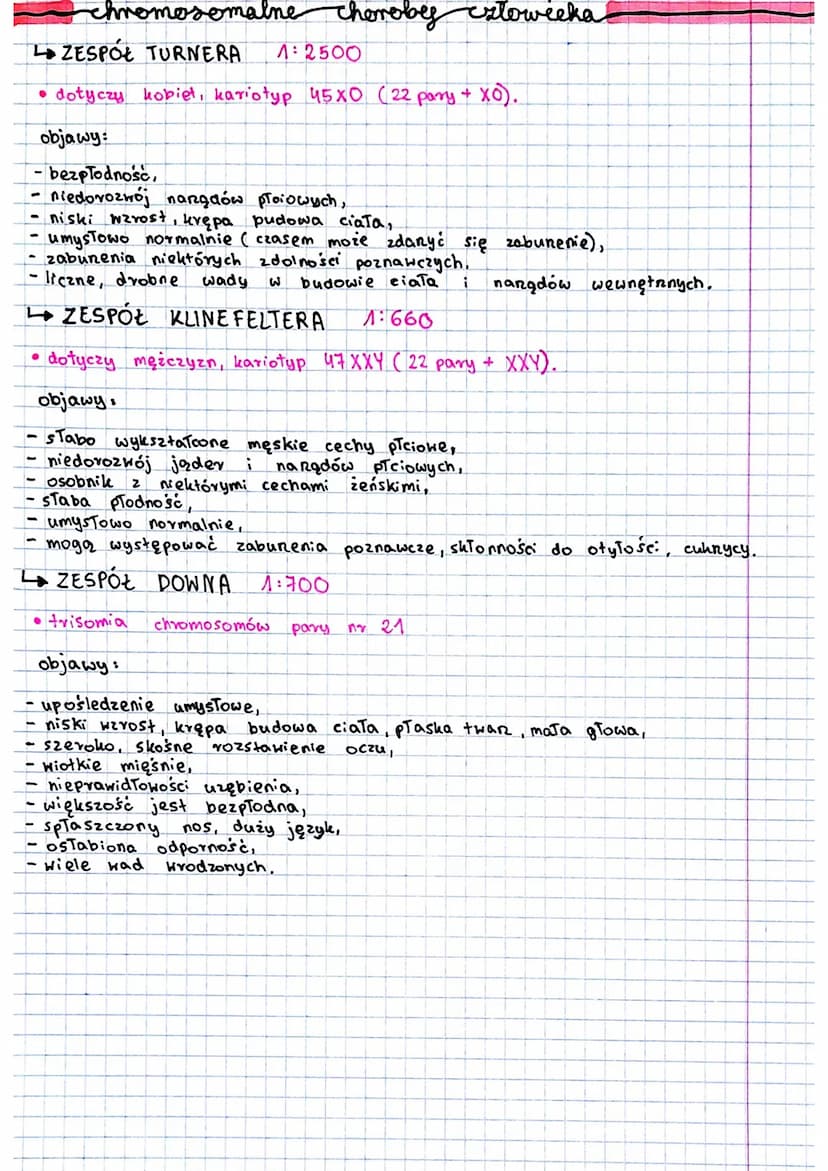 chromosomalne choroby człowieka
↳ ZESPÓŁ TURNERA 1:2500
• dotyczy kobiet, kariotyp 45X0 (22 pary + X0).
objawy:
- bezpłodność,
- niedorozwój narządów płciowych,
- niski wzrost, krępa budowa ciała,
- umysłowo normalnie (czasem może zdarzyć się zaburzenie),
- zaburzenia niektórych zdolności poznawczych,
- liczne, drobne wady w budowie ciała i narządów wewnętrznych.
↳ ZESPÓŁ KLINEFELTERA 1:660
• dotyczy mężczyzn, kariotyp 47XXY (22 pary + XXY).
objawy:
- słabo wykształcone męskie cechy płciowe,
- niedorozwój jąder i narządów płciowych,
- osobnik z niektórymi cechami żeńskimi,
- słaba płodność,
- umysłowo normalnie,
- mogą występować zaburzenia poznawcze, skłonności do otyłości, cukrzycy.
↳ ZESPÓŁ DOWNA 1:700
• trisomia chromosomów pary nr 21
objawy:
- upośledzenie umysłowe,
- niski wzrost, krępa budowa ciała, płaska twarz, mała głowa,
- szeroko, skośne rozstawienie oczu,
- wiotkie mięśnie,
- nieprawidłowości uzębienia,
- większość jest bezpłodna,
- spłaszczony nos, duży język,
- osłabiona odporność,
- wiele wad wrodzonych.